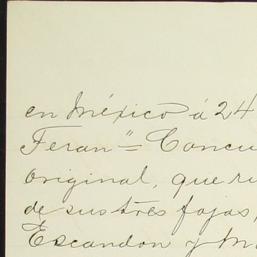 en México á 24
Feran"= Concu
original, que ru
de sus tres fojas,
Escandon y M